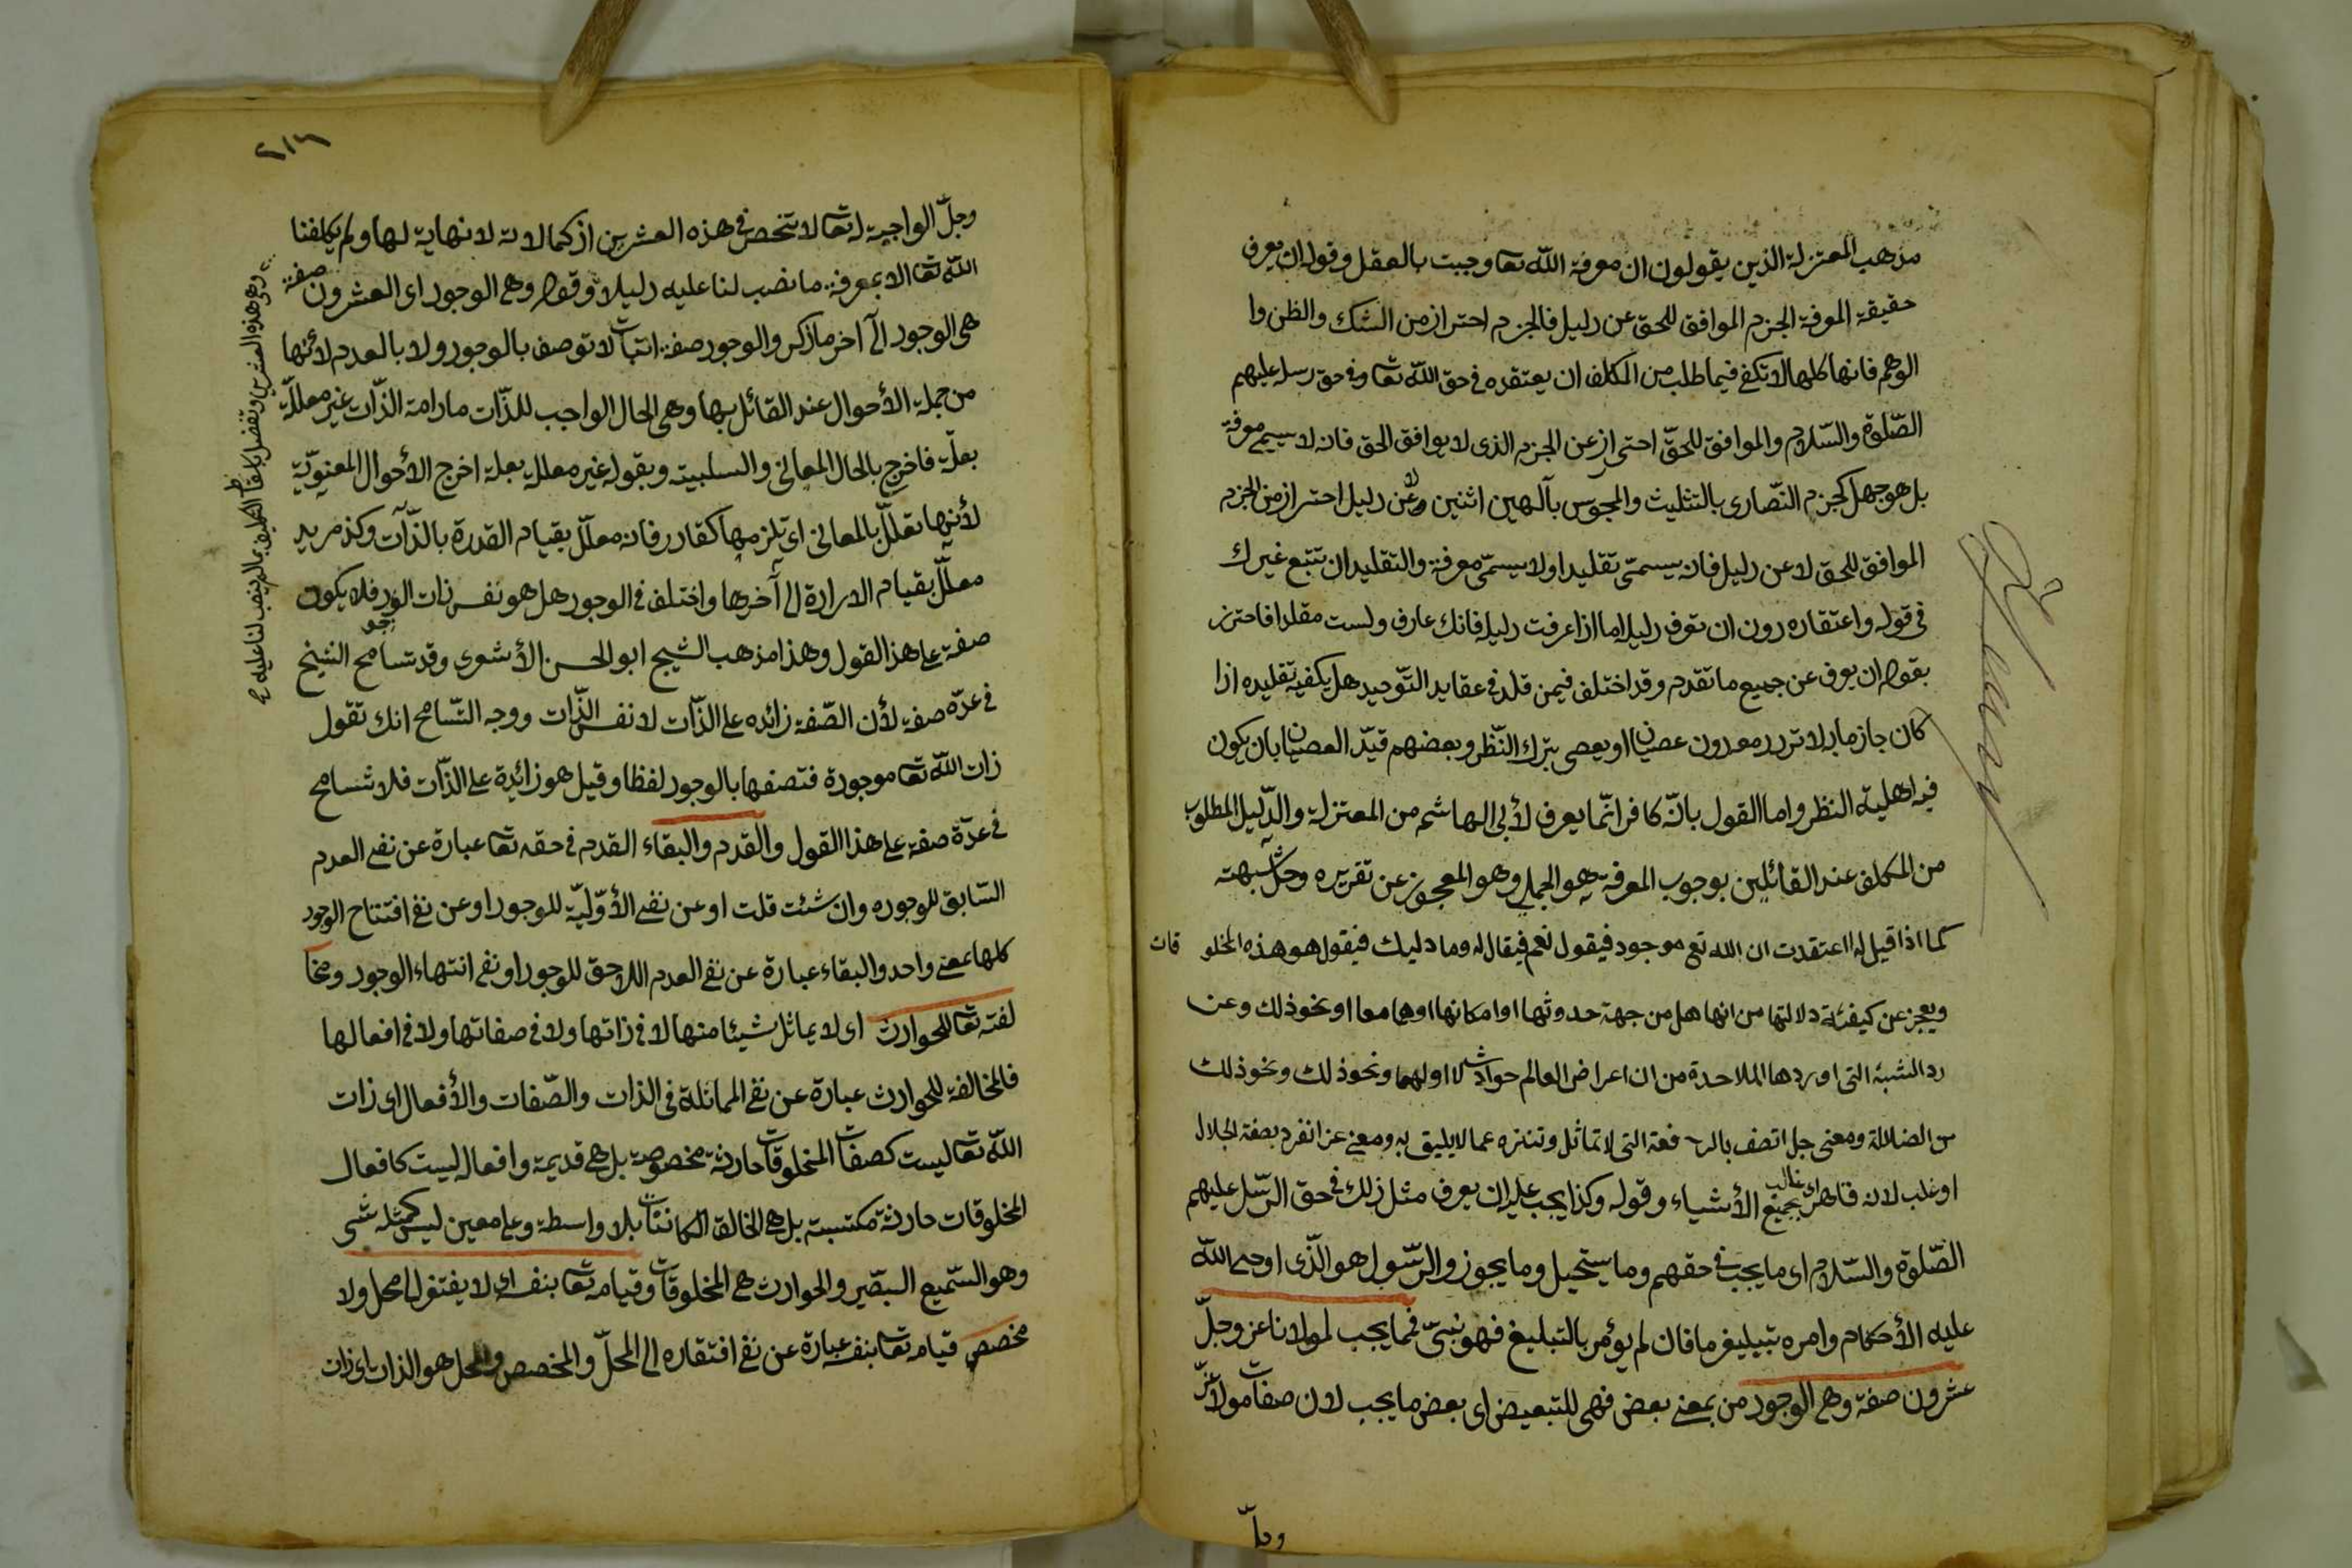 مذهب المعتزلة الذين يقولون ان معرفة الله تعا وجبت بالعقل وقوله ان يعرف
حقيقة المعرفة الجزم الموافق للحق عن دليل فالجزم احتراز من الشك والظن وا
الوهم فانها كلها لا تكفى فيما طلب من المكلف ان يعتقده فى حق الله تعا وفى حق رسله عليهم
الصّلوة والسّلام والموافق للحقّ احتراز عن الجزم الذى لا يوافق الحق فانه لا يسمى معرفة
بل هو جهل كجزم النّصارى بالتثليث والمجوس بآلهين اثنين وعن دليل احتراز من الجزم
الموافق للحق لا عن دليل فانه يسمّى تقليدا ولا يسمّى معرفة والتقليد ان تتبع غيرك
فى قوله واعتقاده دون ان تعرف دليله اما اذا عرفت دليله فانك عارف ولست مقلدا فاحترز
بقوله ان يعرف عن جميع ما تقدم وقد اختلف فيمن قلد فى عقايد التّوحيد هل يكفيه تقليده اذا
كان جازما بلا تردد معدون عصيان او يعصى بترك النّظر وبعضهم قيّد العصيان بان يكون
فيه اهلية النظر واما القول بانّه كافر انّما يعرف لأبى الهاشم من المعتزلة والدّليل المطلوب
من المكلف عند القائلين بوجوب المعرفة هو الجملى وهو المعجوز عن تقريره وحل شبهته
كما اذا قيل له اعتقدت ان الله تع موجود فيقول نعم فيقال له وما دليك فيقول هو هذه المخلو قات
ويعجز عن كيفئة دلالتها من انها هل من جهة حدوثها او امكانها او هما معا او نحو ذلك وعن
رد الشبه التى اوردها الملاحدة من ان اعراض العالم حوادث لا اول لها ونحو ذلك ونحو ذلك
من الضلالة ومعنى جل اتصف بالر فعة التى لا تماثل وتنزه عما لا يليق به ومعنى عز انفرد بصفة الجلال
او غلب لانه قاهر اى غالب بجميع الأشياء وقوله وكذا يجب عليه ان يعرف مثل ذلك فى حق الرّسل عليهم
الصّلوة والسّلام اى ما يجب فى حقهم وما يستحيل وما يجوز والرّسول هو الّذى اوحى الله
عليه الأحكام وامره بتبليغ ما فان لم يؤمر بالتبليغ فهو نبىّ فما يجب لمولانا عز وجلّ
عشرون صفة وهى الوجود من بمعنى بعض فهى للتبعيض اى بعض ما يجب لان صفات مولانا عزّ
وجلّ
٢١٦
وجلّ الواجبة له تعا لا تنحصر فى هذه العشرين اذ كمالاته لا نهاية لها ولم يكلفنا
الله تعا الا بمعرفة ما نصب لنا عليه دليلا وقوله وهى الوجود اى العشرون صفة
هى الوجود الى آخر ما ذكر والوجود صفة اثبات لا توصف بالوجود ولا بالعدم لأنّها
من جملة الأحوال عند القائل بها وهى الحال الواجب للذّات مادامة الذّات غير معللّة
بعلّة فاخرج بالحال المعانى والسلبية وبقوله غير معللة بعلة اخرج الأحوال المعنويّة
لأنها تعللّ بالمعانى اى تلزمها كقادر فانه معللّ بقيام القدرة بالذّات وكذ مريد
معللّ بقيام الارادة الى آخرها واختلف فى الوجود هل هو نفس ذات الوجود فلا يكون
صفة على هذ القول وهذا مذهب الشيخ ابو الحسن الأشعرى وقد تسامح الشيخ
فى عدّه صفة لأن الصّفة زائده على الذّات لا نفس الذّات ووجه التّسامح انك تقول
ذات الله تعا موجودة فتصفها بالوجود لفظا وقيل هو زائدة على الذّات فلا تسامح
فى عدّة صفة على هذا القول والقدم والبقاء القدم فى حقه تعا عبارة عن نفى العدم
السّابق للوجوده وان شئت قلت او عن نفى الأوّليّة للوجود او عن نفى افتتاح الوجود
كلها بمعنى واحد والبقاء عبارة عن نفى العدم اللاحق للوجود او نفى انتهاء الوجود ومخا
لفته تعا للحوادث اى لا يماثل شيئا منها لا فى ذاتها ولا فى صفاتها ولا فى افعالها
فالمخالفة للحوادث عبارة عن نفى المماثلة فى الذات والصّفات والأفعال اى ذات
الله تعا ليست كصفات المخلوقات حادثة مخصوصة بل هى قديمة وافعاله ليست كافعال
المخلوقات حادثة مكتسبة بل هى الخالق الكائنات بلا واسطة وعلى معين ليس كمثله شى
وهو السّميع البصير والحوادث هى المخلوقات وقيامه تعا بنفسه اى لا يفتقر الى محل ولا
مخصص قيامه تعا بنفسه عبارة عن نفى افتقاره الى المحلّ والمخصص والمحل هو الذات اى ذات
هذه العشرين وتفضل باسقاط التكليف بما لم ينصب لنا عليه